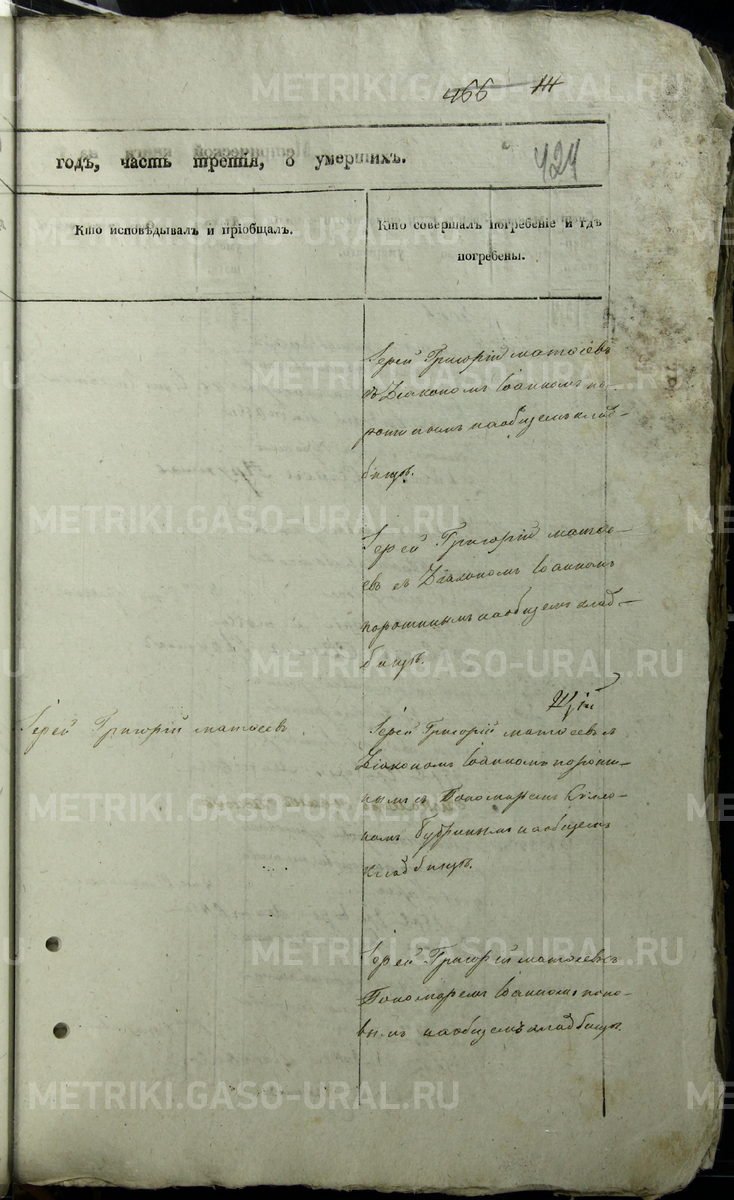 466
424
годъ, часть третія, о умершихъ.
Кто исповѣдывалъ и пріобщалъ.
Кто совершалъ погребеніе и гдѣ
погребены.
Іерей Григорій Матѳіевъ
съ Діакономъ Іоанномъ По-
рошинымъ на общемъ клад-
бищѣ.
Іерей Григорій Матѳі-
евъ съ Діакономъ Іоанномъ
Порошинымъ на общемъ клад-
бищѣ.
Іерей Григорій Матѳіевъ
Іерей Григорій Матѳіевъ съ
Діакономъ Іоанномъ Пороши-
нымъ съ Пономаремъ
Бубринымъ на общемъ
кладбищѣ.
Іерей Григорій Матѳіевъ съ
Пономаремъ Іоанномъ Попо-
вымъ на общемъ кладбищѣ.
METRIKI.GASO-URAL.RU